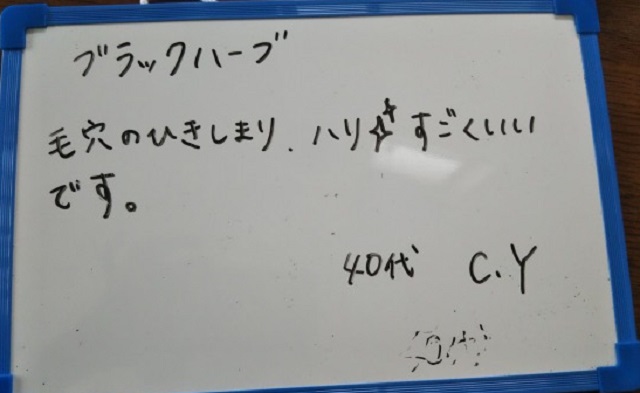 ブラックハーブ
毛穴のひきしまり、ハリ✨すごくいい
です。
40代 C.Y